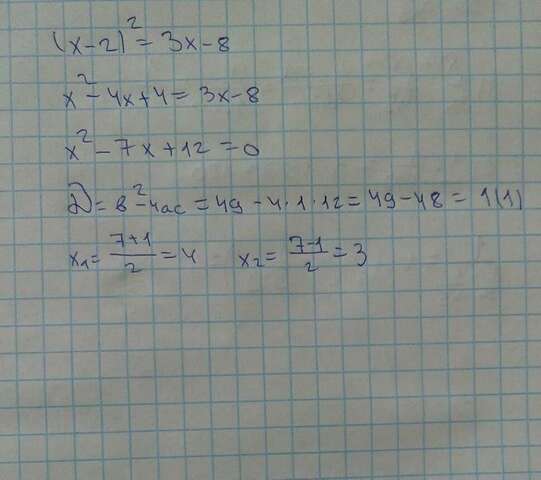 (x-2)² = 3x-8
x²-4x+4 = 3x-8
x²-7x+12 = 0
D = в²-4ac = 49-4·1·12 = 49-48 = 1(1)
x₁ = (7+1)/2 = 4 x₂ = (7-1)/2 = 3